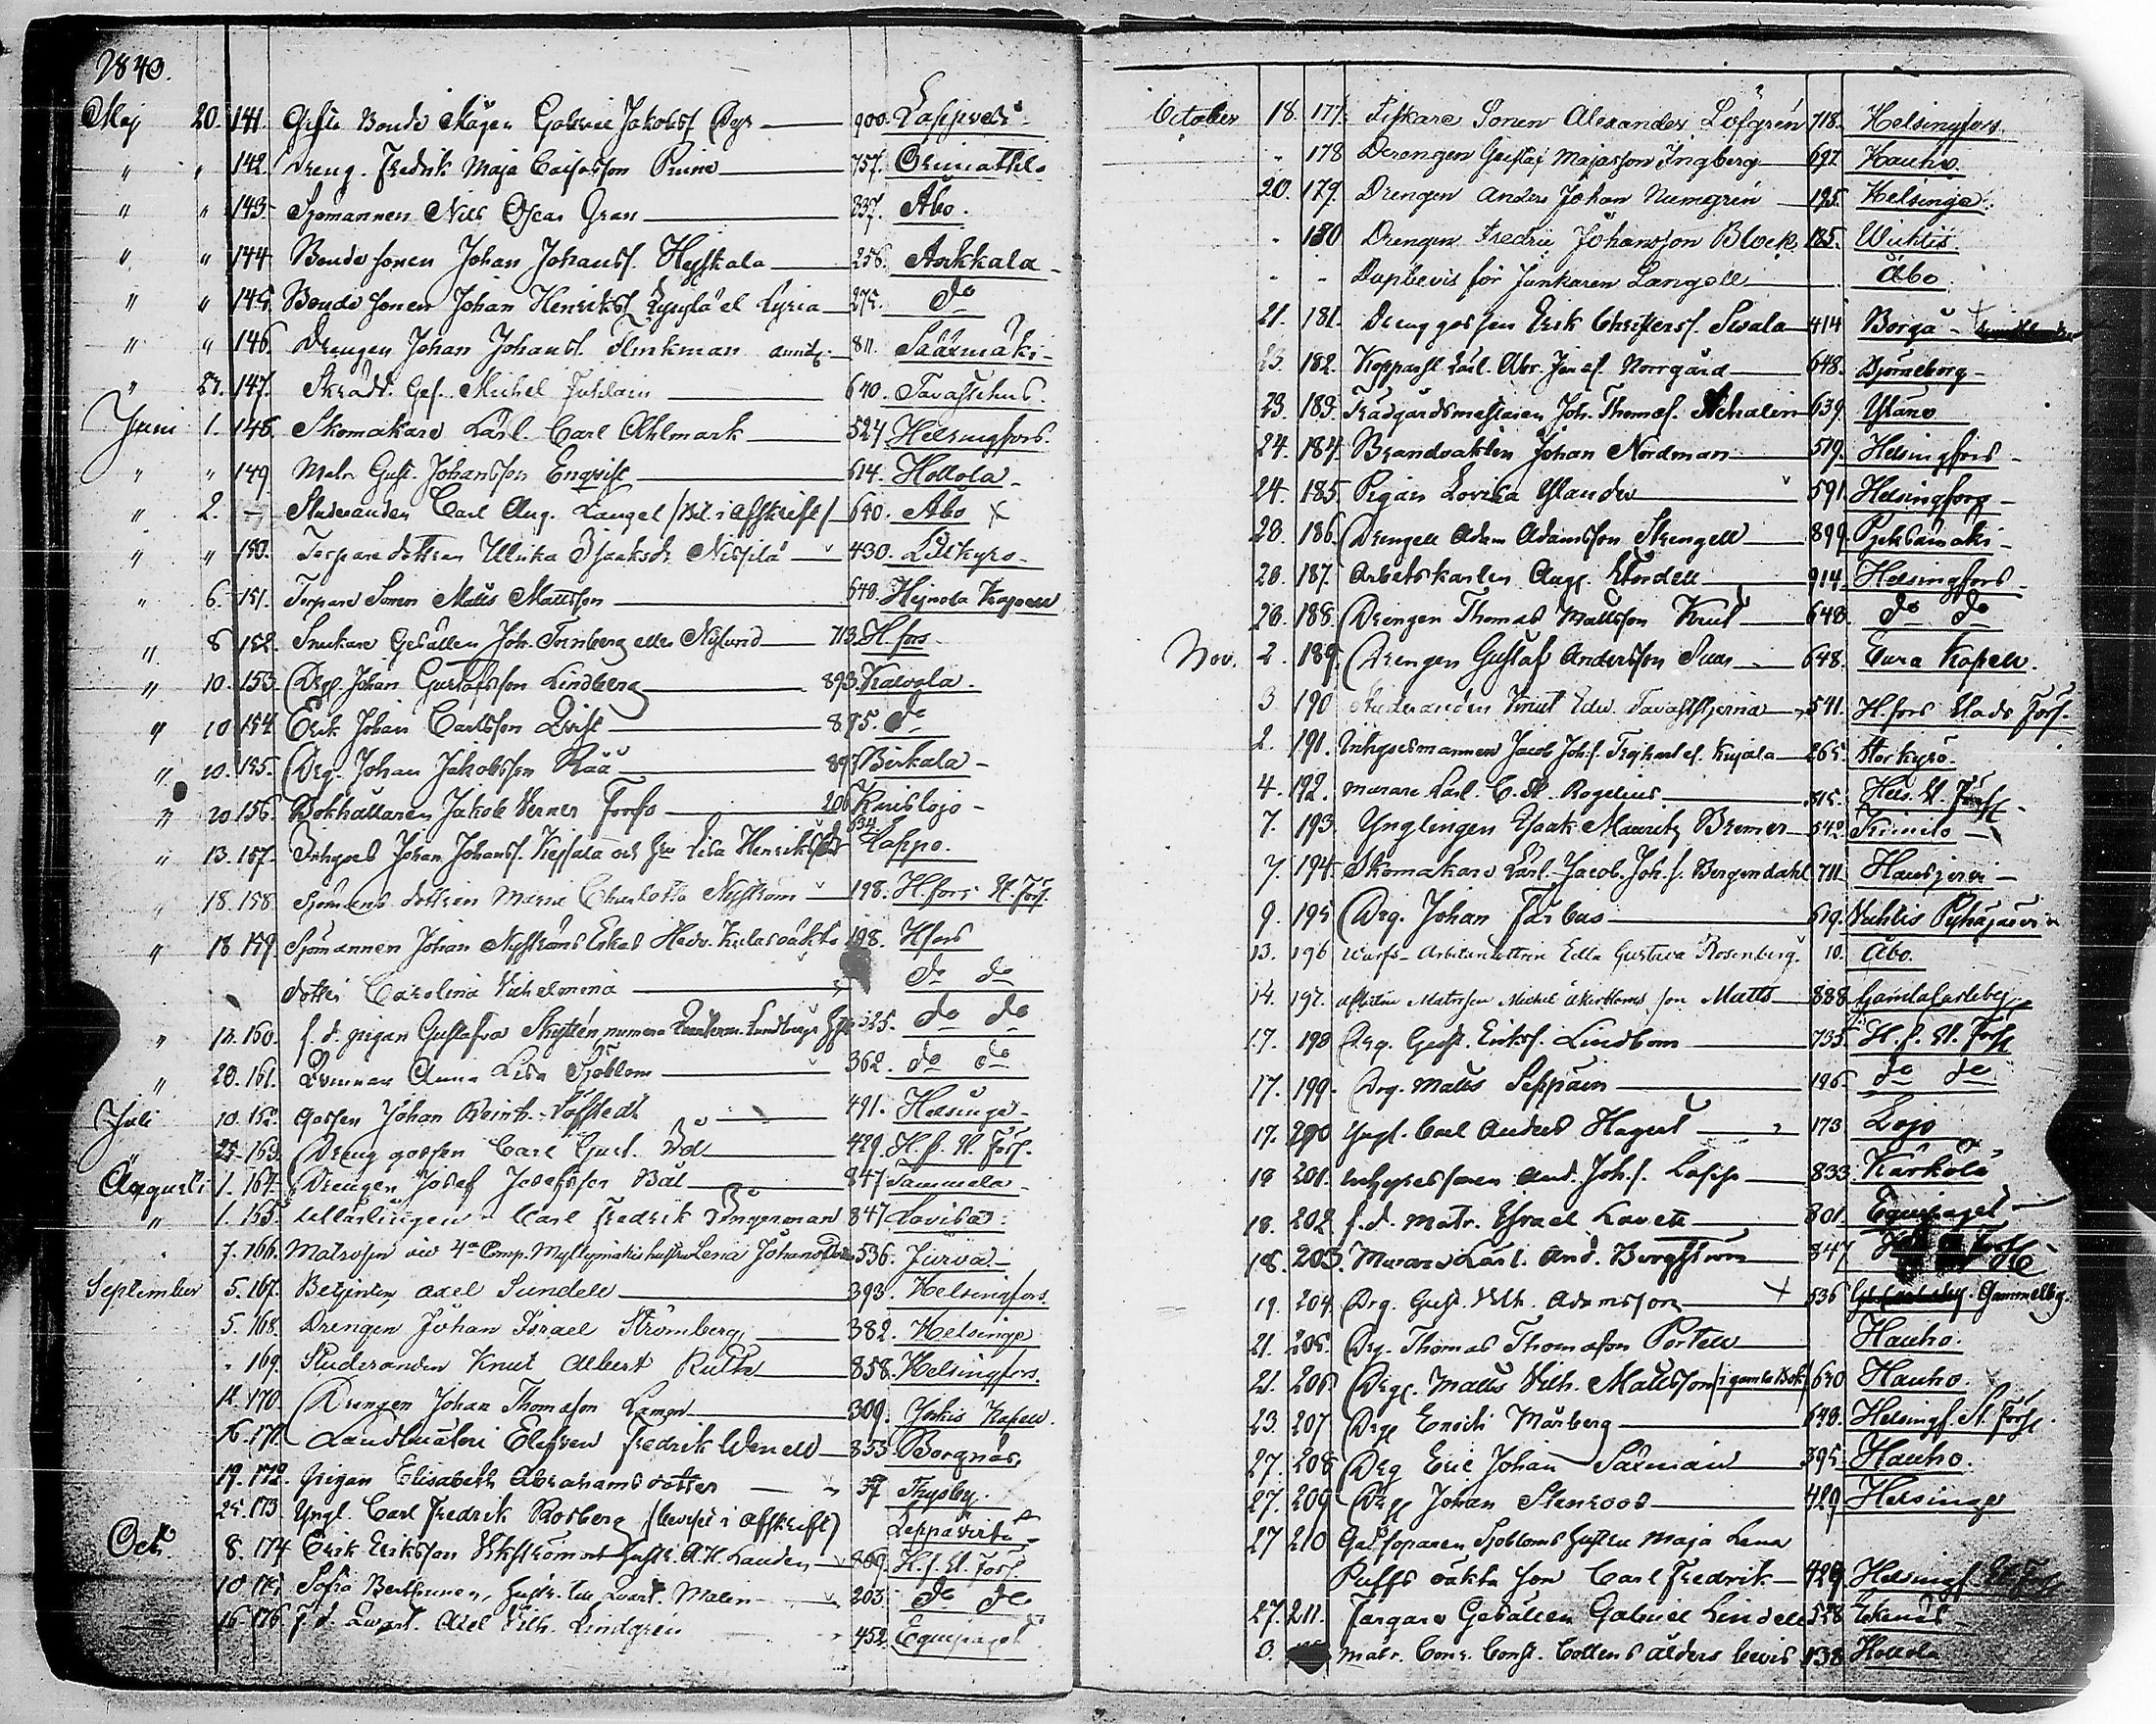 1840.
Maj 20. 141. Gifte Bonde Mågen Gabriel Jakobss. 900. Lappvesi
" " 142. Dreng. Fredrik Maja Caisasson Prime 757. Orimathla
" " 143. Sjömannen Nils Oscar Gran 337. Åbo.
" " 144 Bonde sonen Johan Johanss. Heikkala 256. Asikkala
" " 145. Bonde sonen Johan Henrikss. el Lyria 275. do
" " 146. Drengen Johan Johanss. Flinkman 811. Sääxmäki
" 147. Skrädd. Ges. Michel Juhlain 640. Tavastehus.
Juni 1. 148. Skomakare Lärl. Carl Ahlmark 524 Helsingfors.
" " 149 Matr. Gust. Johansson Enqvist 614. Hollola
" 2. – Studeranden Carl Aug. Langel / Bet. i afskrift / 640. Åbo
" " 150. Torpare dottren Ulrika Isaksdr. Nissilä 430. Lillkyro
" 6. 151. Torpare Sonen Matts Mattsson 640. Hejnola Kapell
" 8 152. Snickare Gesällen Joh. Törnberg eller Nylund 713. H.fors
" 10. 153. Drg. Johan Gustafsson Lindberg 893. Kalvola.
" 10 154 Erik Johan Carlsson Qvist 895. do
" 20. 155. Drg. Johan Jakobsson Rää 89 Birkala
" 20 156. Bokhållaren Jakob Verner Forss 206 Karislojo
" 13. 157. Inhyses Johan Johanss. Kessala och hu Lisa Henriksdr 634 Lappo.
" 18. 158. Sjömans dottren Maria Charlotta Nyström 198. H.fors St. Förs.
" 18 159. Sjömannen Johan Nyströms Enka Hedv. 198. Hfors
dotter Carolina Vilhelmina do do
" 160. f.d. pigan Gustafva Skyttén, numera Lundbergs 325. do do
" 20. 161. Qvinnan Anna Lisa Sjöblom 362. do do
Juli 10. 162. Gossen Johan Reinh. Löfstedt 491. Helsinge
25. 163. Dreng gossen Carl Gust. 429. H.f. St. Förs.
Augusti 1. 164. Drengen Josef Josefsson Bäl 847 Tammela
" 1. 165. Carl Fredrik Ångerman 847 Lovisa
7. 166. Matrosen vid 4de Comp. hustru Lena Johansdotter 536. Jurva
September 5. 167. Betjenten Axel Sundell 393. Helsingfors.
5. 168. Drengen Johan Israel Strömberg 382. Helsinge
" 169. Studeranden Knut Albert Ruth 858. Helsingfors.
14. 170. Drengen Johan Thomasson Lamon 309. Kapell.
16. 171. Landtmäteri Eleven Fredrik Wenell 853 Borgnäs
19. 172. Pigan Elisabeth Abrahamsdotter 37 Thusby.
25. 173. Yngl. Carl Fredrik Rosberg (beviset i afskrift) Leppävirta
Oct. 8. 174 Erik Eriksson Vikström och hustr. A.H. 869. H.f. St. Förs.
10. 175. Sofia Berthunen, hustr. till Qvart. Malin 203. do do
16. 176. f.d. Qvart. Axel Vilh. Lindgrén 452. Equipaget
October 18. 177. Fiskare Sonen Alexander Löfgrén 718. Helsingfors.
" 178 Drengen Gustaf Majasson Ingberg 697. Hauho.
20. 179. Drengen Anders Johan Numgrén 195. Helsinge.
" 180 Drengen Fredric Johansson Block 185. Wichtis.
" " Dopbevis för Junkaren Langell Åbo.
21. 181. Dreng gossen Erik Christerss. Swala 414 Borgå
23. 182. Kopparsl. Lärl. Abr. Norrgård 648. Björneborg
23. 183. Trädgårdsmästaren Joh. Thomas. 639. Ylane
24. 184. Brandvakten Johan Nordman 519. Helsingfors
24. 185. Pigan Lovisa Ylander 591. Helsingfors
28. 186. Drengen Adam Adamsson Strengell 899. Pieksämäki
28. 187. Arbetskarlen Aug. 914. Helsingfors
28. 188. Drengen Thomas Mattsson Knut 648. do do
Nov. 2. 189. Drengen Gustaf Andersson Suni 648. Eura Kapell.
3. 190 Studeranden Knut Edw. Tavaststjerna 541. H.fors Stads Förs.
2. 191. Inhysesmannen Jacob Joh.s. Kujala 265. Storkyro.
4. 192. Murare Lärl. C. A. Rogelius 815. Hels. St. Förs.
7. 193. Ynglingen Isak Mauritz Bremer 542. Kimito
7. 194. Skomakare Lärl. Jacob. Joh.s. Bergendahl 711 Hausjervi
9. 195 Drg. Johan Farbus 619. Vichtis Pyhäjärvi
13. 196 Varfs-Arbetardottren Edla Gustava Rosenberg. 10. Åbo.
14. 197. Matrosen Michel Åkerbloms son Matts 888 Gamlacarleby
17. 198 Drg. Gust. Erikss. Lindbom 735 H.f. St. Förs.
17. 199. Drg. Matts Seppäin 196. do do
17. 200 Yngl. Carl Anders Hagert 173 Lojo
18 201. Inhysessonen And. Joh.s. Lasse 833. Kärkölä
18. 202 f.d. Matr. Israel Lavett 801. Equipaget
18. 203. Murare Lärl. And. Bergström 847
19. 204. Drg. Gust. Vilh. Adamsson 536 Gammelby.
21. 205. Drg. Thomas Thomasson Portell Hauho.
21. 206 Drg. Matts Vilh. Mattsson (i gamla Bok) 640 Hauho.
23. 207 Drg. Enoch Mårberg 648. Helsingf. St. Förs.
27. 208 Drg Eric Johan Salmain 395. Hauho.
27. 209 Drg Johan Stenroos 429 Helsinge
27 210 Gatsoparen Sjöbloms hustru Maja Lena
Puffs oäkta son Carl Fredrik 429 Helsingf.
27. 211. Färgare Gesällen Gabriel Lindell 558 Ekenäs
3. Matr. Conr. Const. Collens ålders bevis 138 Hollola